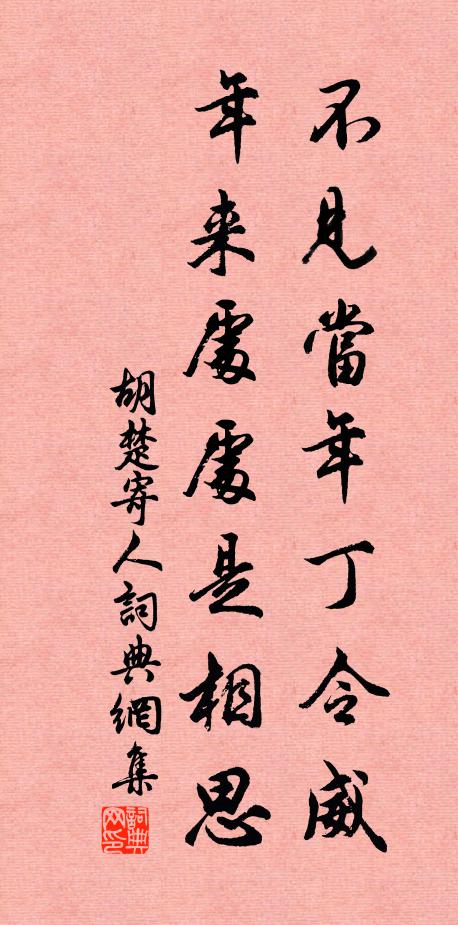 不見當年丁令威
年来處處是相思
胡楚寄人詞典網集
詞典网印